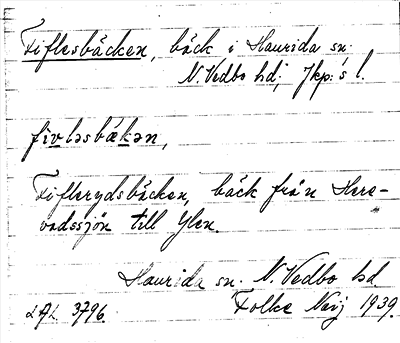 Fiflesbäcken, bäck i Haurida sn.
N. Vedbo hd; Jkp:s l.
fìvləsbäkən,
Fiflerydsbäcken, bäck från Here-
vadssjön till Ylen.
Haurida sn. N. Vedbo hd
LAL 3796. Folke Neij 1939.